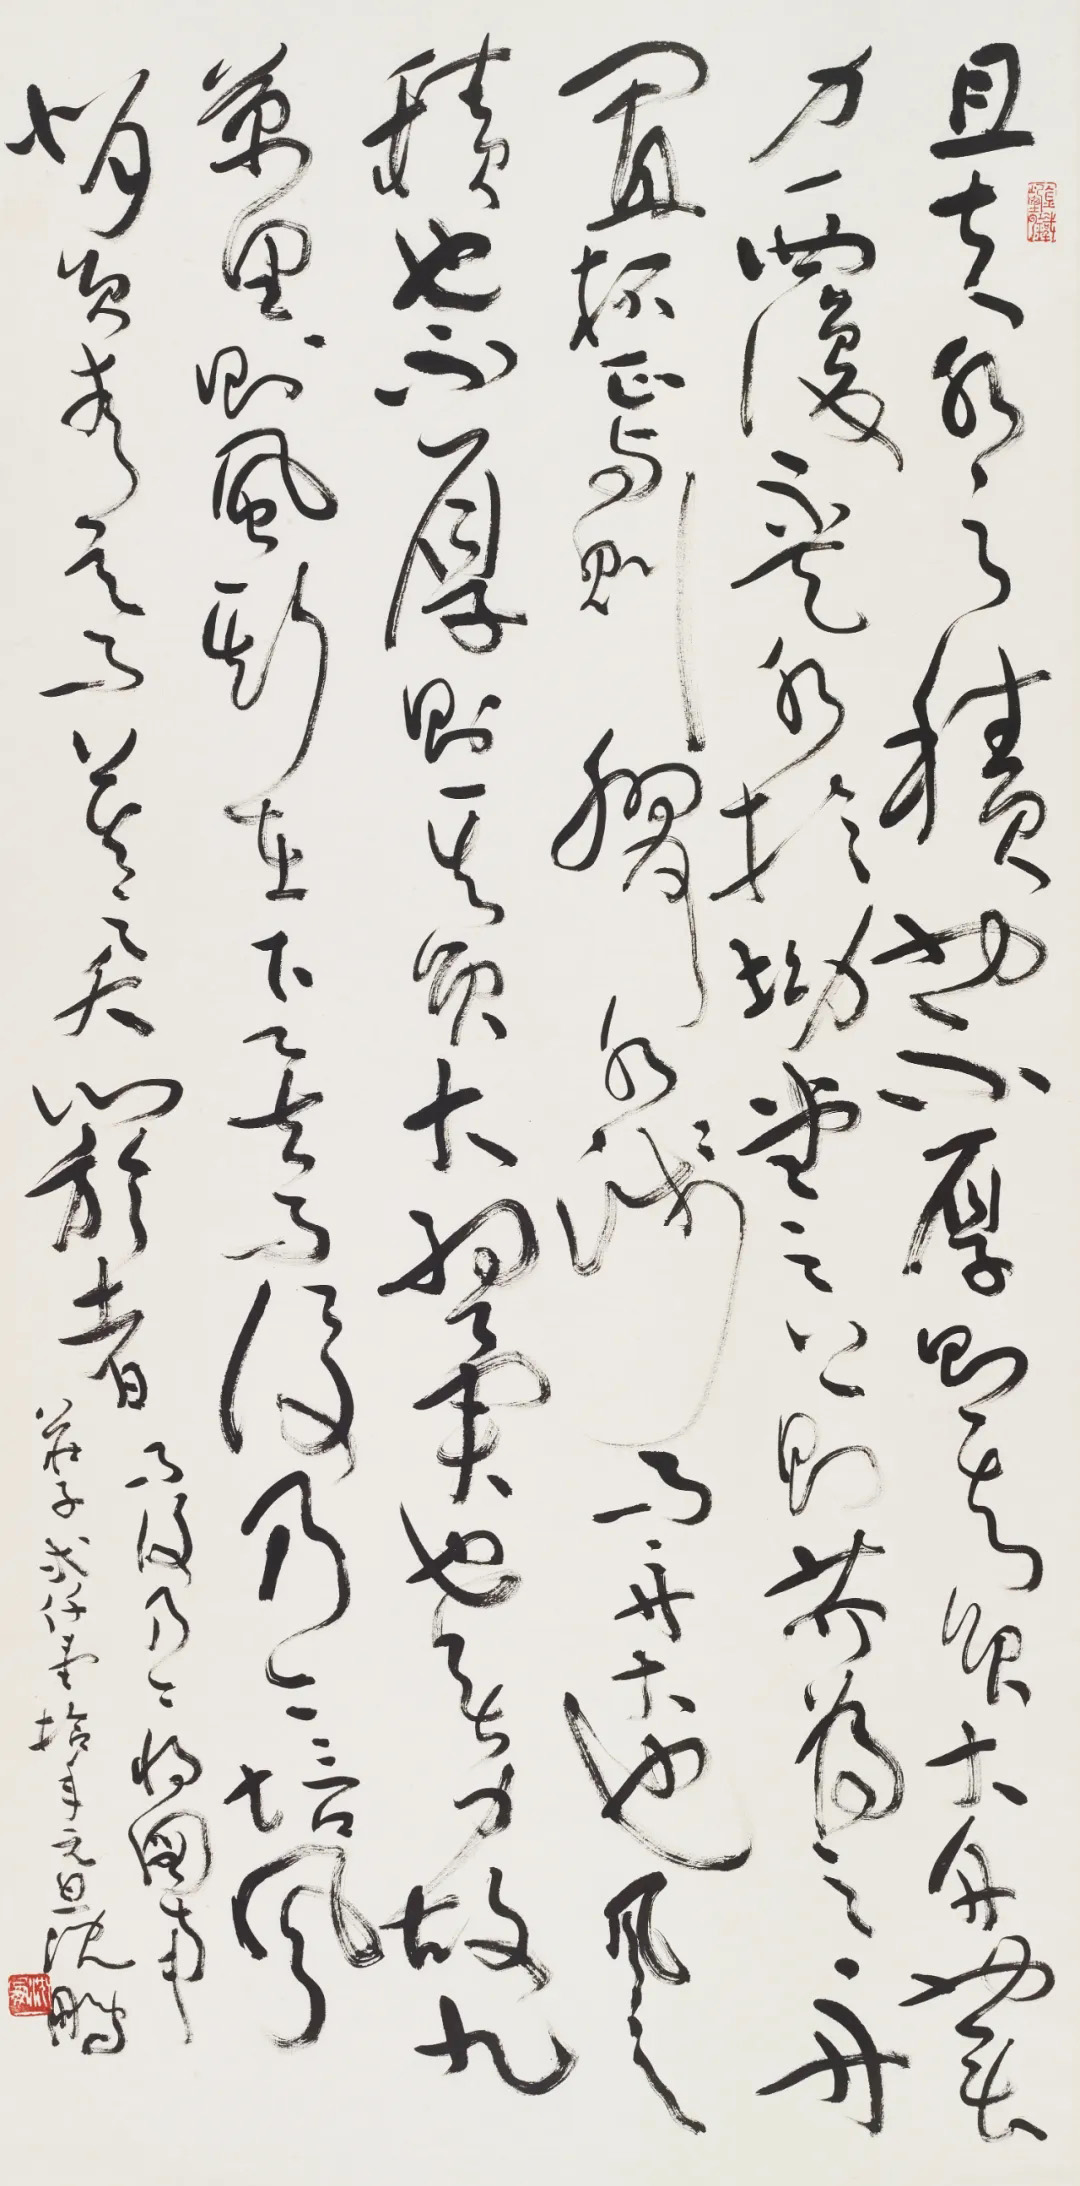 且夫水之積也不厚則其負大舟也無
力覆杯水於坳堂之上則芥為之舟
置杯焉則膠水淺而舟大也風之
積也不厚則其負大翼也無力故九
萬里則風斯在下矣而後乃今培風
背負青天而莫之夭閼者
而後乃今將圖南
莊子 弍仟零拾年元旦沈鵬